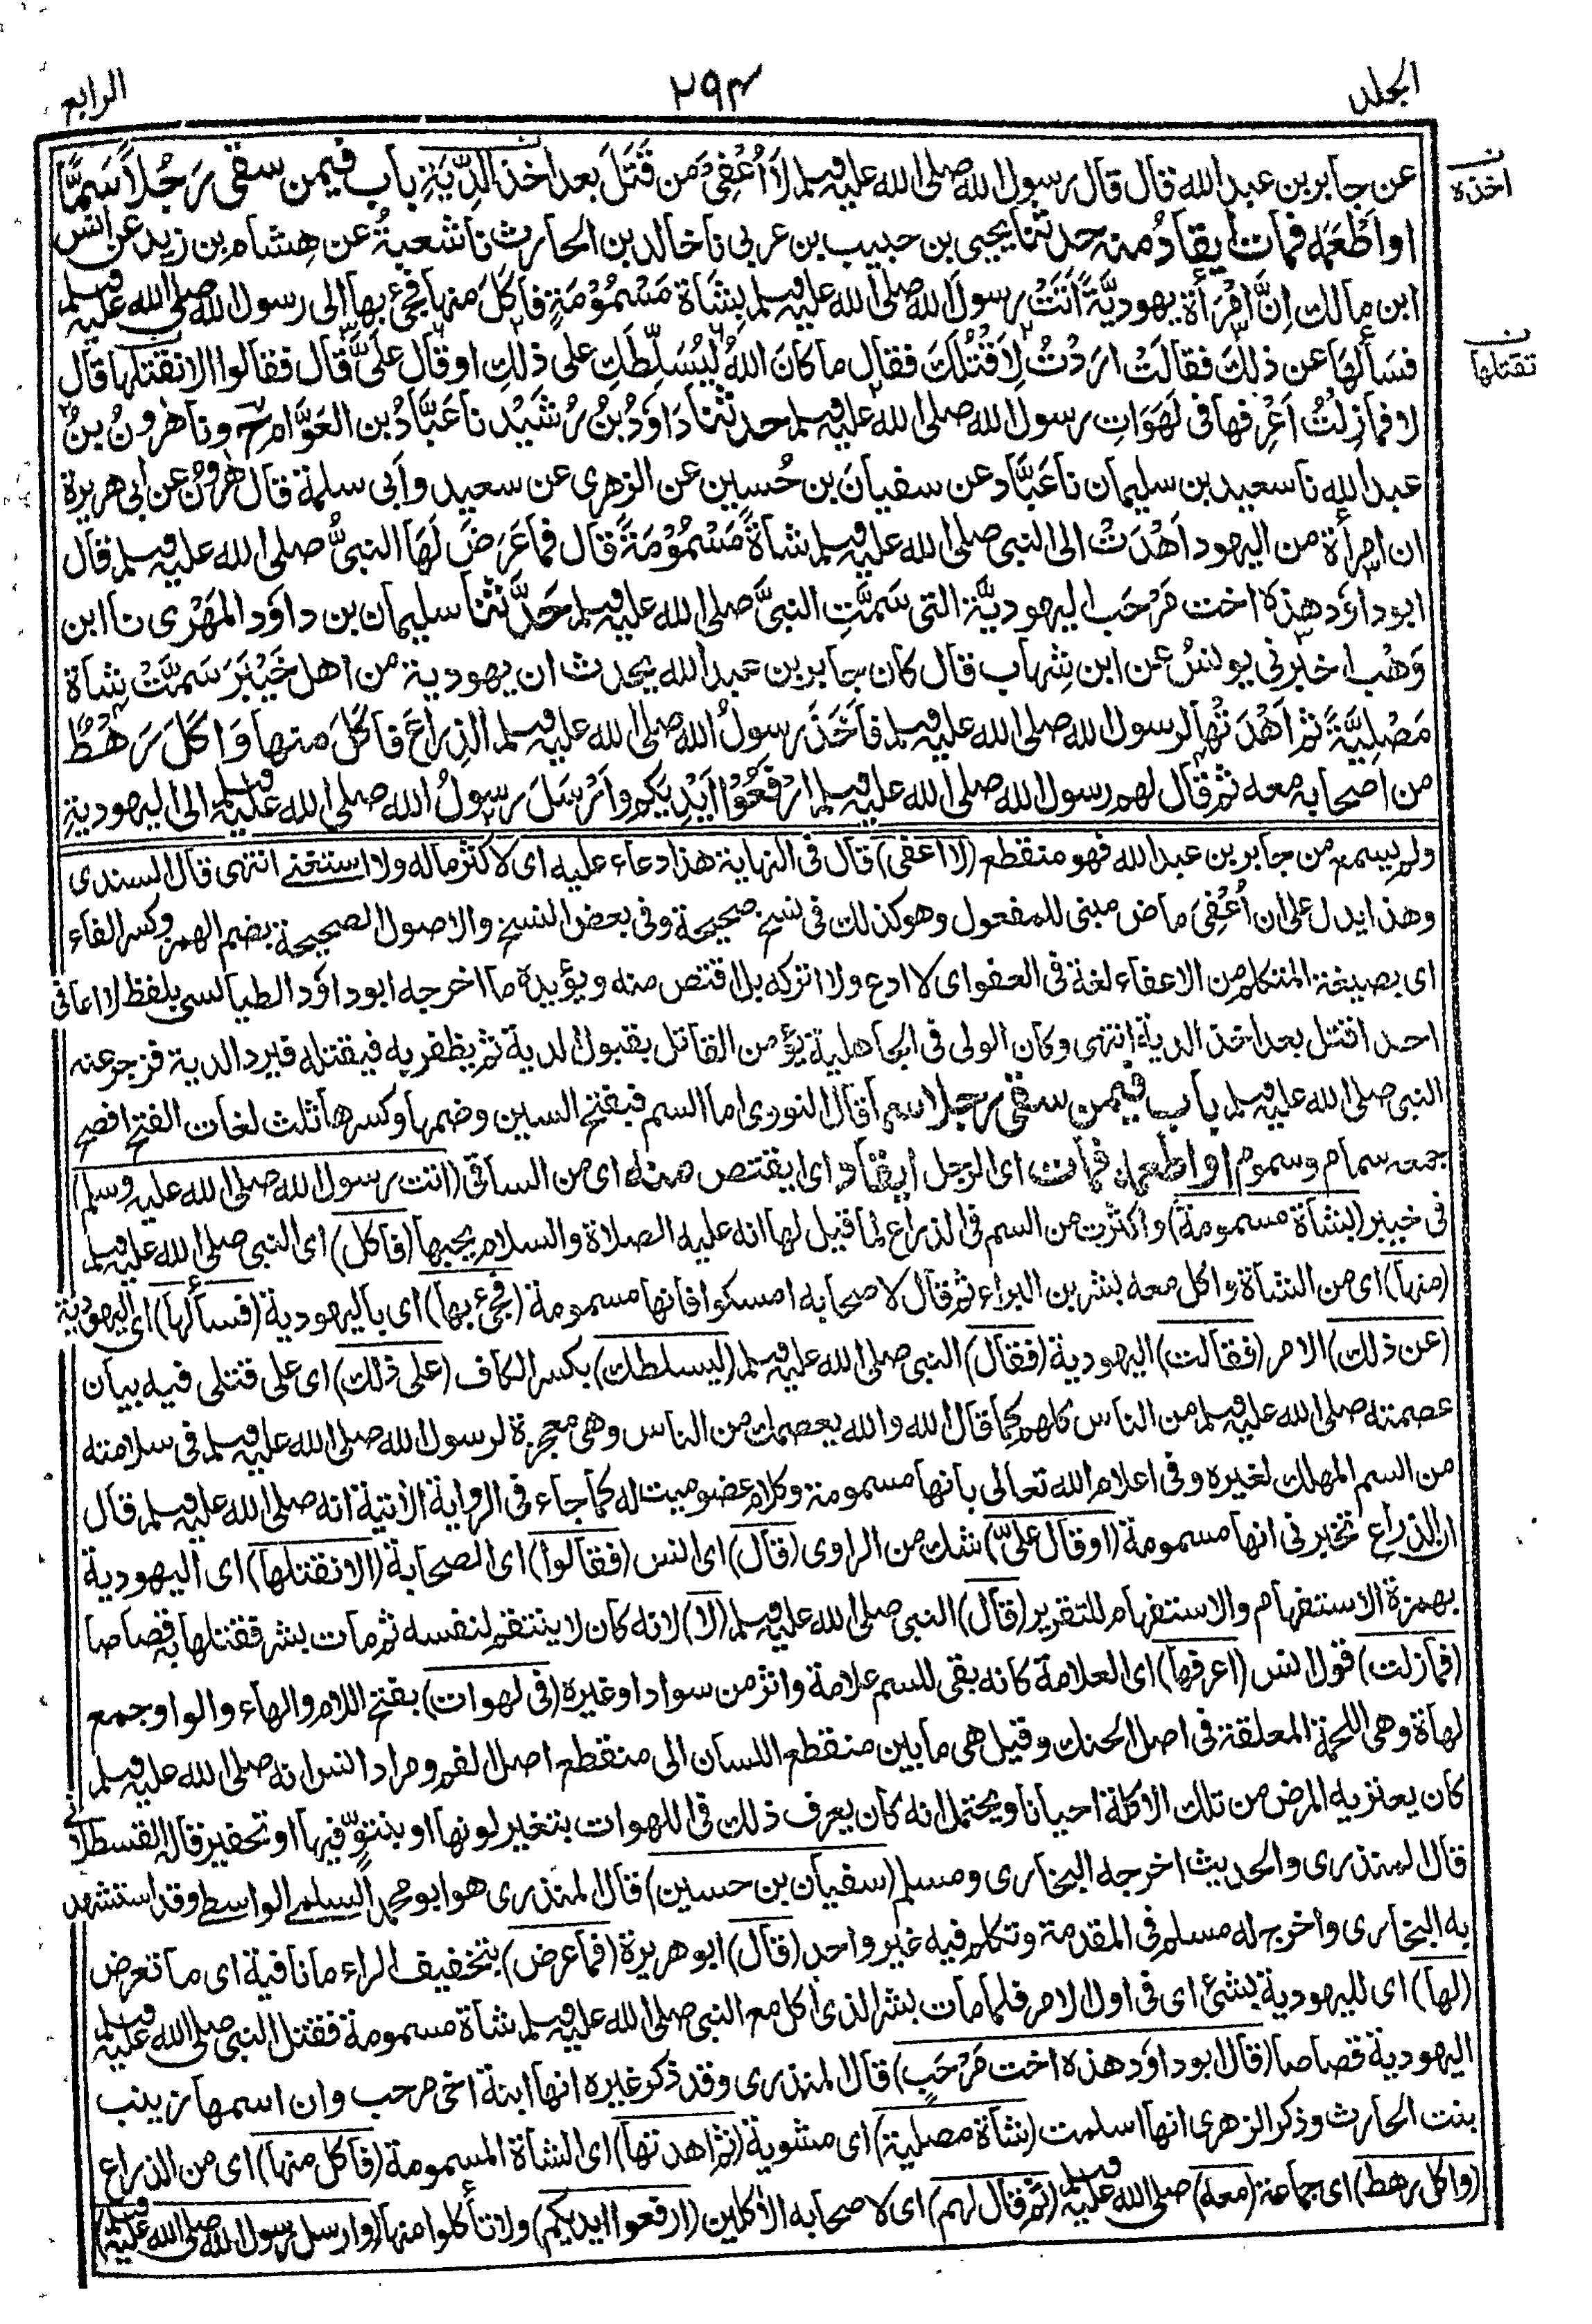 المجلد
٢٩٤
الرابع
عن جابر بن عبد الله قال قال رسول الله صلى الله عليه وسلم لا أُعْفِيَ مَن قَتَلَ بعد اخذ الدِّيَةِ باب فيمن سقى رَجُلاً سَمًّا
ن اخذه
او اَطْعَمَه فمات أيقادُ منه حدثنا يحيى بن حبيب بن عربي نا خالد بن الحارث نا شعبةُ عن هِشام بن زيد عن انس
ابن مالك اِنَّ امْرَأة يهوديَّةً اَتَتْ رسولَ الله صلى الله عليه وسلم بِشَاة مَسْمُوْمَةٍ فاَكَلَ منها فجِئ بها الى رسول الله صلى الله عليه وسلم
فسَألَها عن ذلك فقالَتْ اردْتُ لِاَقْتُلَكَ فقال ما كانَ اللهُ لِيُسَلِّطَكِ على ذلكِ او قال عَلَىَّ قال فقالوا الا نقتلها قال
ن تقتلها
لا فمازِلْتُ اَعْرِفها فى لَهَوَاتِ رسول الله صلى الله عليه وسلم حدثنا دَاوٗدُ بنُ رُشَيْد نا عَبَّادُ بن العَوَّام ح ونا هٰرونُ بنُ
عبد الله نا سعيد بن سليمان نا عَبَّاد عن سفيانَ بن حُسين عن الزهرى عن سعيد وأبى سلمة قال هٰرونُ عن ابى هريرة
ان امرأة من اليهود اَهْدَتْ الى النبى صلى الله عليه وسلم شاةً مَسْمُوْمَةً قال فما عَرَضَ لَهَا النبىُّ صلى الله عليه وسلم قال
ابو داوٗد هذه اخت مَرْحَب اليهوديَّة التى سَمَّتِ النبىَّ صلى الله عليه وسلم حَدَّثَنَا سليمان بن داوٗد المَهْرى نا ابن
وَهْب اخبرنى يونسُ عن ابن شِهاب قال كان جابر بن عبد الله يحدث ان يهودية من اهل خَيْبَرَ سَمَّتْ شاة
مَصْلِيَّةً ثم اَهْدَتْها لرسول الله صلى الله عليه وسلم فاَخَذَ رسولُ الله صلى الله عليه وسلم الذِراعَ فاَكَلَ منها وَاَكَلَ رَهْطٌ
من اَصْحابه معه ثم قال لهم رسول الله صلى الله عليه وسلم ارْفَعُوْا اَيْدِيَكم واَرْسَلَ رسولُ الله صلى الله عليه وسلم الى اليهوديةِ
ولم يسمع من جابر بن عبد الله فهو منقطع (لا اعفى) قال فى النهاية هذا دعاء عليه اى لا كثر ماله ولا استغنے انتهى قال السندى
وهذا يدل على ان اُعْفِىَ ماض مبنى للمفعول وهو كذلك فى نسخ صحيحة وفى بعض النسخ والاصول الصحيحة بضم الهمز وكسر الفاء
اى بصيغة المتكلم من الاعفاء لغة فى العفو اى لا ادع ولا اتركه بل اقتص منه ويؤيده ما اخرجه ابو داوٗد الطيالسى بلفظ لا اعافى
احدا قتل بعد اخذ الدية انتهى وكان الولى فى الجاهلية يؤمن القاتل بقبول الدية ثم يظفر به فيقتله فيرد الدية فزجر عنه
النبى صلى الله عليه وسلم باب فيمن سقى رجلا سما قال النووى اما السم فبفتح السين وضمها وكسرها ثلث لغات الفتح افصح
جمعه سمام وسموم او اطعمه فمات اى الرجل ايقاد اى ايقتص منه اى من الساقى (اتت رسول الله صلى الله عليه وسلم)
فى خيبر (بشاة مسمومة) واكثرت من السم فى الذراع لما قيل لها انه عليه الصلاة والسلام يحبها (فاكل) اى النبى صلى الله عليه وسلم
(منها) اى من الشاة واكل معه بشر بن البراء ثم قال لاصحابه امسكوا فانها مسمومة (فجئ بها) اى باليهودية (فسألها) اى اليهودية
(عن ذلك) الامر (فقالت) اليهودية (فقال) النبى صلى الله عليه وسلم (ليسلطك) بكسر الكاف (على ذلك) اى على قتلى فيه بيان
عصمته صلى الله عليه وسلم من الناس كلهم كما قال الله والله يعصمك من الناس وهى معجزة لرسول الله صلى الله عليه وسلم فى سلامته
من السم المهلك لغيره وفى اعلام الله تعالى بانها مسمومة وكلام عضو ميت له كما جاء فى الرواية الآتية انه صلى الله عليه وسلم قال
ان الذراع تخبرنى انها مسمومة (او قال علىّ) شك من الراوى (قال) اى انس (فقالوا) اى الصحابة (الا نقتلها) اى اليهودية
بهمزة الاستفهام والاستفهام للتقرير (قال) النبى صلى الله عليه وسلم (لا) لانه كان لا ينتقم لنفسه ثم مات بشر فقتلها به قصاصا
(فمازلت) قول انس (اعرفها) اى العلامة كانه بقى للسم علامة واثر من سواد او غيره (فى لهوات) بفتح اللام والهاء والواو جمع
لهاة وهى اللحمة المعلقة فى اصل الحنك وقيل هى ما بين منقطع اللسان الى منقطع اصل الفم ومراد انس انه صلى الله عليه وسلم
كان يعتريه المرض من تلك الاكلة احيانا ويحتمل انه كان يعرف ذلك فى اللهوات بتغير لونها او بنتوّ فيها او تحفير قاله القسطلانى
قال المنذرى والحديث اخرجه البخارى ومسلم (سفيان بن حسين) قال المنذرى هو ابو محمد السلمے الواسطے وقد استشهد
به البخارى واخرج له مسلم فى المقدمة وتكلم فيه غير واحد (قال) ابو هريرة (فما عرض) بتخفيف الراء ما نافية اى ما تعرض
(لها) اى لليهودية بشئ اى فى اول الامر فلما مات بشر الذى اكل مع النبى صلى الله عليه وسلم شاة مسمومة فقتل النبى صلى الله عليه وسلم
اليهودية قصاصا (قال ابو داوٗد هذه اخت مَرْحَبٍ) قال المنذرى وقد ذكر غيره انها ابنة اخى مرحب وان اسمها زينب
بنت الحارث وذكر الزهرى انها اسلمت (شاة مصلية) اى مشوية (ثم اهدتها) اى الشاة المسمومة (فاكل منها) اى من الذراع
(واكل رهط) اى جماعة (معه) صلى الله عليه وسلم (ثم قال لهم) اى لاصحابه الآكلين (ارفعوا ايديكم) ولا تأكلوا منها (وارسل رسول الله صلى الله عليه وسلم)